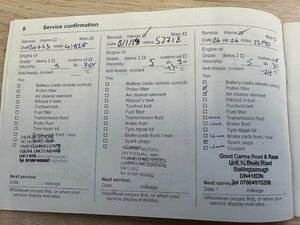 8 Service confirmation
Service: Interim Main
Date miles 41828
Engine oil
Grade: dexos 2 custom oil
Viscosity 5 W 30
Anti-freeze, coolant °C
Yes
Battery (radio remote control)
Pollen filter
Air cleaner element
Ribbed V-belt
Toothed belt
Fuel filter
Transmission fluid
Brake fluid
Tyre repair kit
Brake pads front / rear
Spark plugs
Coolant
Next service:
Date / mileage
Whichever occurs first, or when your
service display indicates.
Service: Interim Main
miles 57718
Engine oil
Grade: dexos 2 custom oil
Viscosity 5 W 30
Anti-freeze, coolant °C
Yes
Battery (radio remote control)
Pollen filter
Air cleaner element
Ribbed V-belt
Toothed belt
Fuel filter
Transmission fluid
Brake fluid
Tyre repair kit
Brake pads front / rear
Spark plugs
Coolant
Next service:
Date / mileage
Whichever occurs first, or when your
service display indicates.
Service: Interim Main
Date 24-10-24 miles 73190
Engine oil
Grade: dexos 2 custom oil
Viscosity 5 W 30
Anti-freeze, coolant °C
Yes
Battery (radio remote control)
Pollen filter
Air cleaner element
Ribbed V-belt
Toothed belt
Fuel filter
Transmission fluid
Brake fluid
Tyre repair kit
Brake pads front / rear
Spark plugs
Coolant
Stallingborough
DN418DN
Tel 07864915256
Next service:
Date / mileage
Whichever occurs first, or when your
service display indicates.